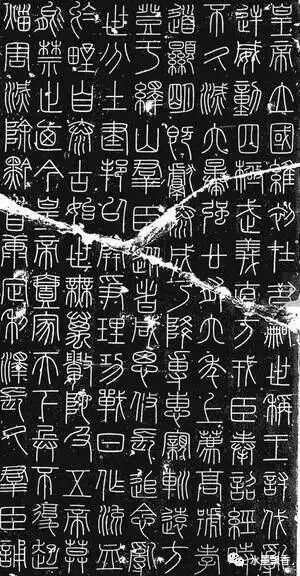 皇帝立國維初在昔嗣世稱王討伐亂
逆威動四極武義直方戎臣奉詔經時
不久滅六暴強廿有六年上薦高號孝
道顯明既獻泰成乃降尃惠親巡遠方
登于繹山群臣從者咸思攸長追念亂
世分土建邦以開爭理功戰日作流血
於野自泰古始世無萬數陀及五帝莫
能禁止迺今皇帝壹家天下兵不復起
災害滅除黔首康定利澤長久群臣誦
水墨飘香